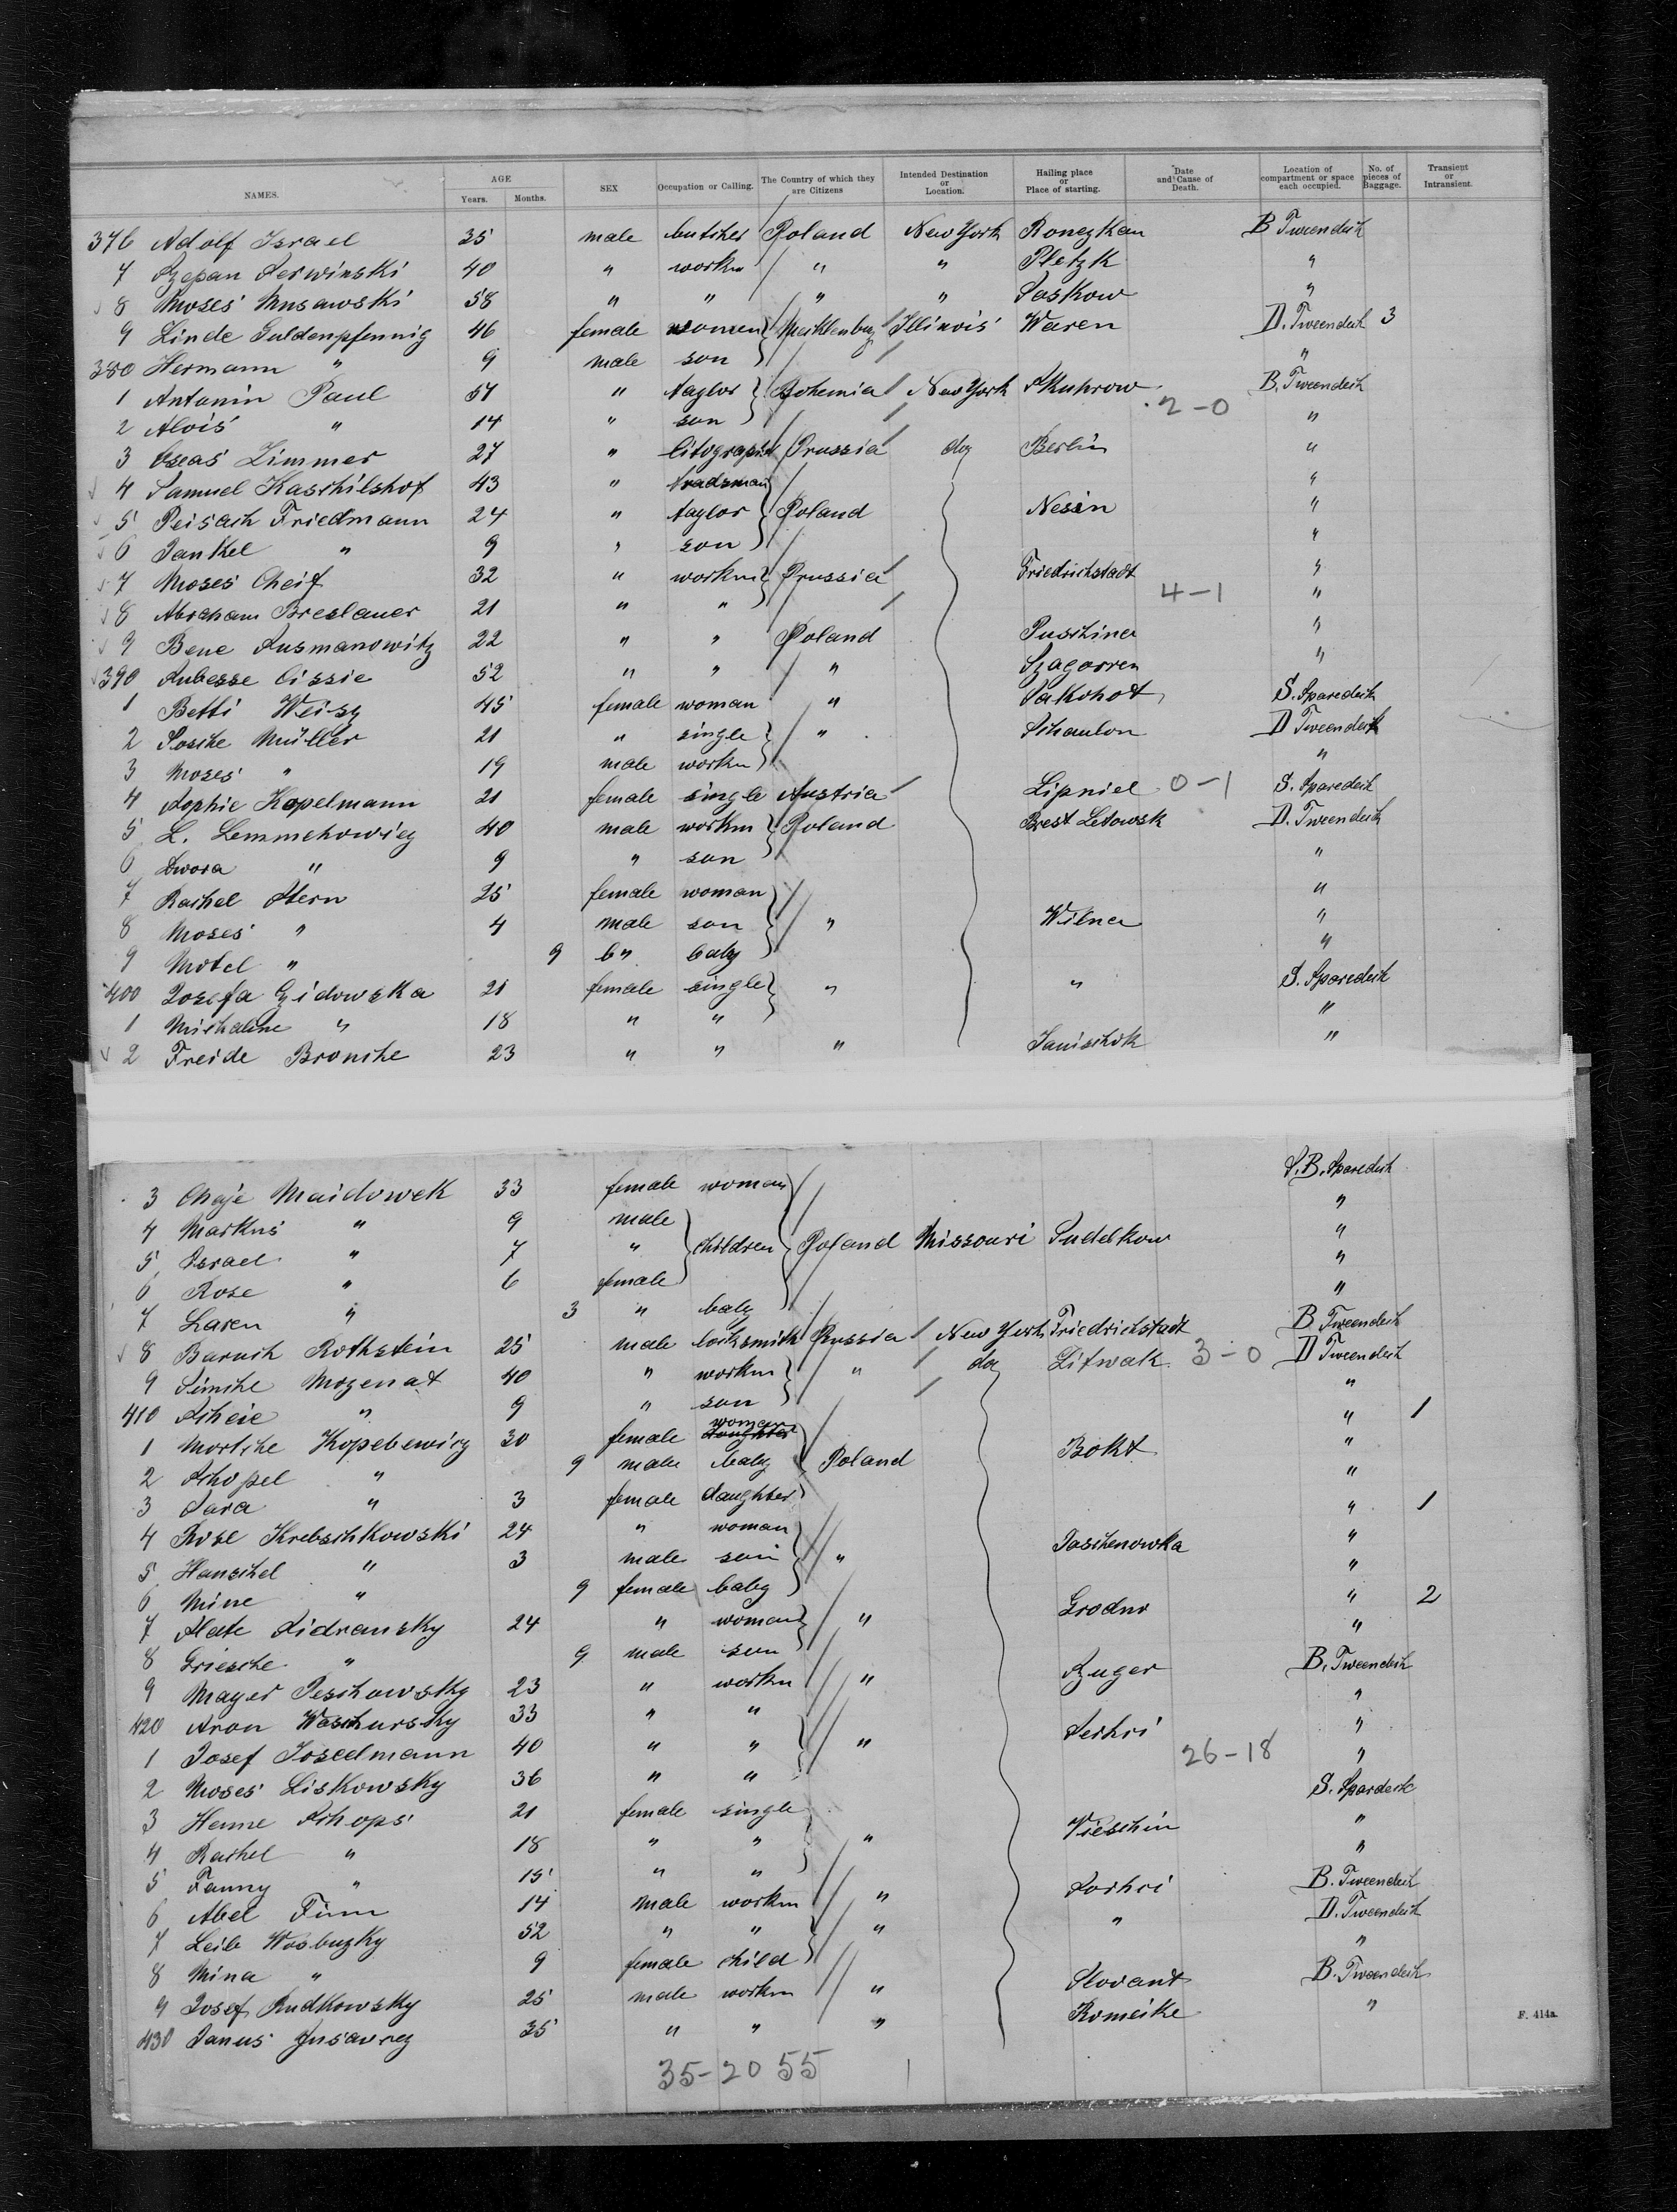 NAMES. AGE Years. Months. SEX Occupation or Calling. The Country of which they are Citizens Intended Destination or Location. Hailing place or Place of starting. Date and Cause of Death. Location of compartment or space each occupied. No. of pieces of Baggage. Transient or Intransient.
376 Adolf Israel 35 male butcher Poland New York B Tweendeck
7 40 " workm " " Pletzk "
8 Moses Musawski 58 " " " " Saskow "
9 Linde Guldenpfennig 46 female women Mecklenburg Illinois Waren D. Tweendeck 3
380 Hermann " 9 male son "
1 Antonin Paul 51 " taylor Bohemia New York Skuhrow B. Tweendeck
2 Alois " 14 " son 2-0 "
3 Oseas Zimmer 27 " litograpist Prussia do Berlin "
4 Samuel Kaschilshof 43 " tradsman "
5 Peisach Friedmann 24 " taylor Poland Nesin "
6 Jankel " 9 " son "
7 Moses Cheif 32 " workm Prussia Friedrichstadt "
8 Abraham Breslauer 21 " " 4-1 "
9 Bene Susmanowitz 22 " " Poland Puschina "
390 52 " " " Szagorren "
1 Betti Weisz 45 female woman " S. Sparedeck
2 Sosche Müller 21 " single " Schaulon D Tweendeck
3 Moses " 19 male workm "
4 Sophie Kopelmann 21 female single Austria Lipniel 0-1 S. Sparedeck
5 L. Lemmchowicz 40 male workm Poland Brest Letowsk D. Tweendeck
6 Dwora " 9 " son "
7 Rachel Stern 25 female woman "
8 Moses " 4 male son " Wilna "
9 Motel " 9 " baby "
400 Josefa Gzidowska 21 female single " " S. Sparedeck
1 Michaline " 18 " " "
2 Freide Bronche 23 " " " Janischok "
3 Chaje Maidowek 33 female woman S.B. Sparedeck
4 Markus " 9 male "
5 Israel " 7 " children Poland Missouri Sudelkow "
6 Rose " 6 female "
7 Laren " 3 " baby "
8 Baruch Rothstein 25 male locksmith Russia New York Friedrichstadt B Tweendeck
9 Simche Mozenat 40 " workm " do Litwak 3-0 D Tweendeck
410 Scheie " 9 " son "
1 Mortche Kopelewicz 30 female woman " 1
2 Schopel " 9 male baby Poland Bokt "
3 Sara " 3 female daughter "
4 Rose Krebschkowski 24 " woman " 1
5 Hanschel " 3 male son " Jaschenowka "
6 Mine " 9 female baby "
7 Slate Sidransky 24 " woman " Grodno " 2
8 Griesche " 9 male son "
9 Mayer Peschowsky 23 " workm " Szuger B. Tweendeck
420 Aron Waschursky 33 " " "
1 Josef Joseelmann 40 " " " Serhri "
2 Moses Liskowsky 36 " " 26-18 "
3 Henne Schops 21 female single S. Spardeck
4 Rachel " 18 " " " Vieschin "
5 Fanny " 15 " " "
6 Abel Finn 14 male workm " Sorhri B. Tweendeck
7 Leib Wosbuzky 52 " " " " D. Tweendeck
8 Mina " 9 female child "
9 Josef Rudkowsky 25 male workm " Slovant B. Tweendeck
430 Janus 35 " " " Romeike "
35-20 55
F. 414a.